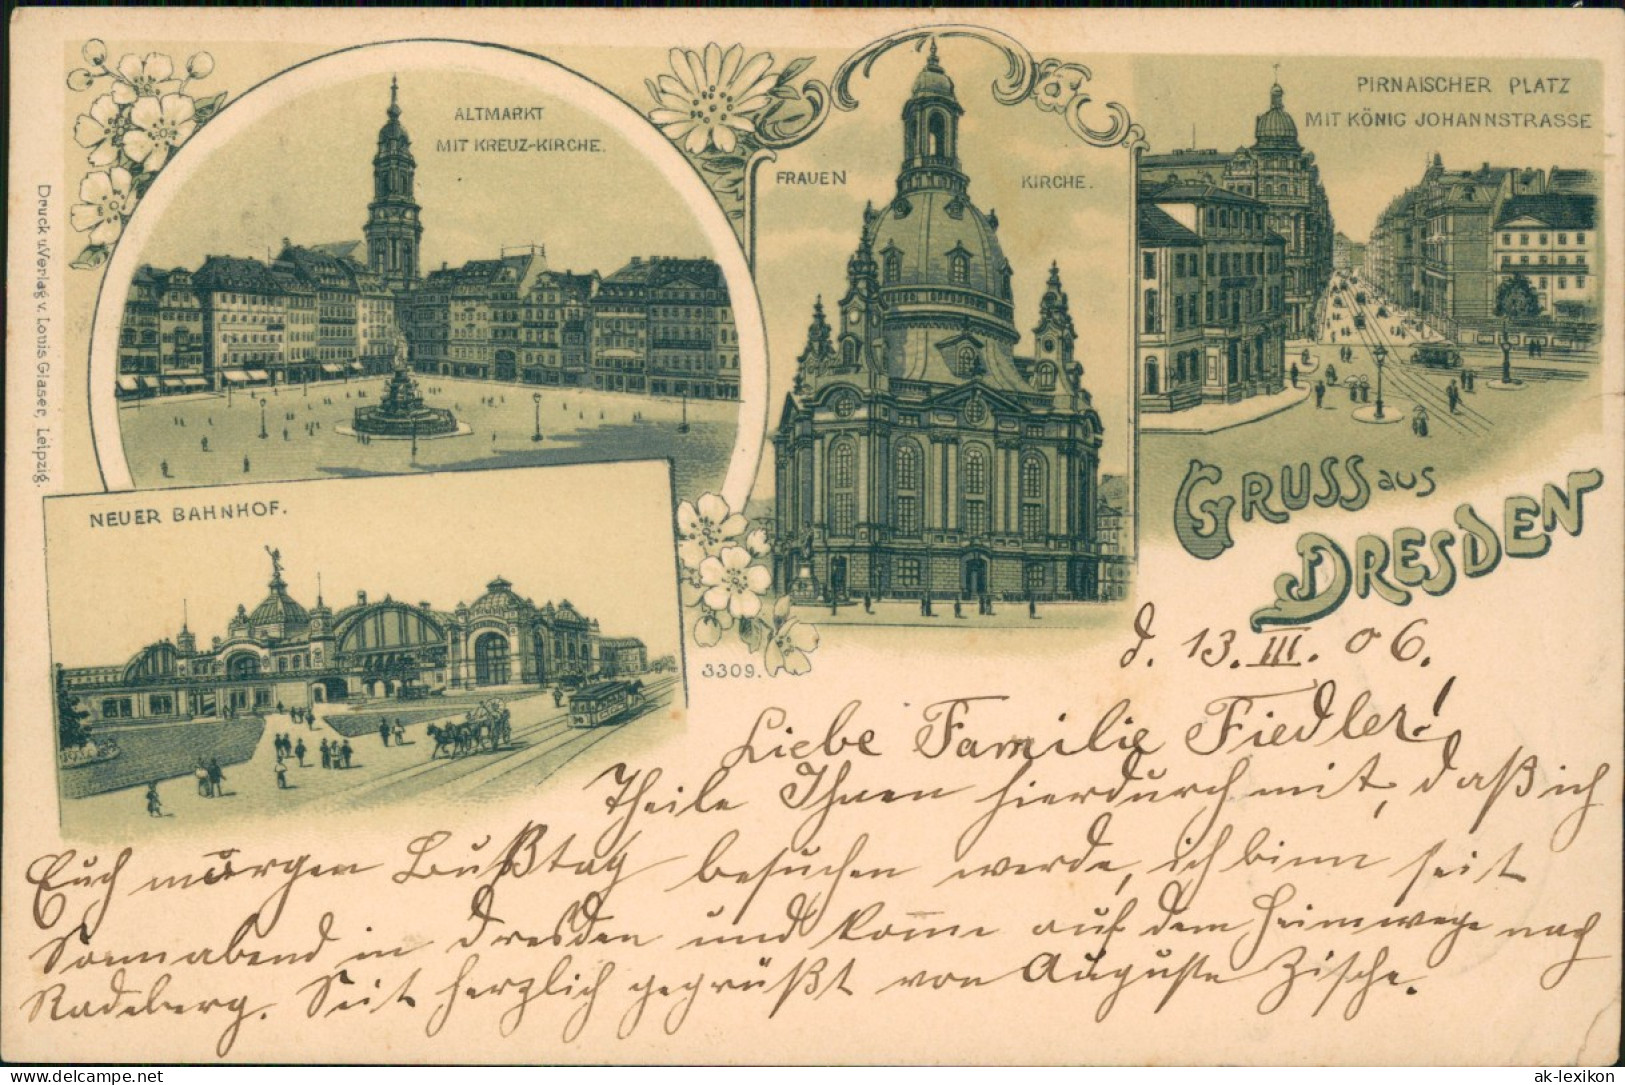 ALTMARKT
MIT KREUZ-KIRCHE.
FRAUEN KIRCHE.
PIRNAISCHER PLATZ
MIT KÖNIG JOHANNSTRASSE
NEUER BAHNHOF.
GRUSS aus
DRESDEN
3309.
Druck u.Verlag v. Louis Glaser, Leipzig.
d. 13. III. 06.
Liebe Familie Fiedler!
Theile Ihnen hierdurch mit, daß ich
Euch morgen Bußtag besuchen werde, ich binn seit
Sonnabend in Dresden und kom̅e auf dem Heimwege nach
Radeberg. Seit herzlich gegrüßt von Auguste Zische.
delcampe.net
ak-lexikon